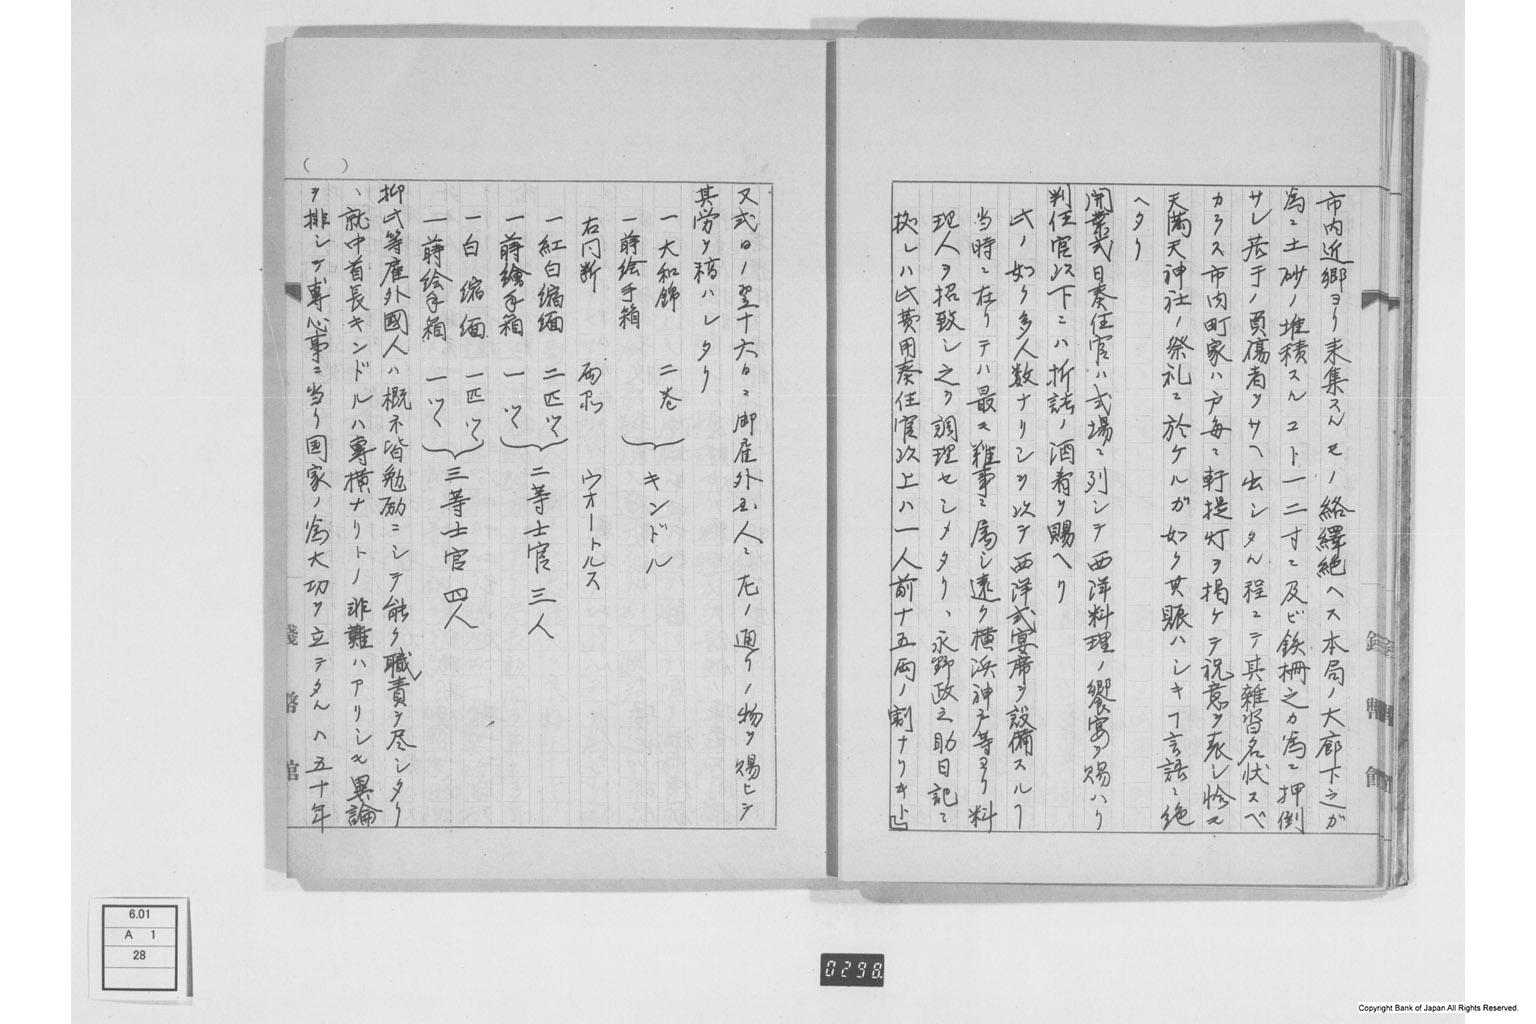 市内近郷ヨリ来集スルモノ絡繹絶ヘス本局ノ大廊下之ガ
為ニ土砂ノ堆積スルコト一二寸ニ及ビ鉄柵之カ為ニ押倒
サレ若干ノ負傷者ヲサヘ出シタル程ニテ其雑沓名状スベ
カラス市内町家ハ戸毎ニ軒提灯ヲ掲ケテ祝意ヲ表シ恰モ
天満天神社ノ祭礼ニ於ケルガ如ク其賑ハシキヿ言語ニ絶
ヘタリ
開業式日奏任官ハ式場ニ列シテ西洋料理ノ饗宴ヲ賜ハリ
判任官以下ニハ折詰ノ酒肴ヲ賜ヘリ
此ノ如ク多人数ナリシヲ以テ西洋式宴席ヲ設備スルヿ
当時ニ在リテハ最モ難事ニ属シ遠ク横浜神戸等ヨリ料
理人ヲ招致シ之ヲ調理セシメタリ、永野政之助日記ニ
拠レハ此費用奏任官以上ハ一人前十五両ノ割ナリキト
又式日ノ翌十六日ニ御雇外国人ニ左ノ通リノ物ヲ賜ヒテ
其労ヲ稿ハレタリ
一大和錦 二巻
一蒔絵手箱
キンドル
右同断 ウオートルス
一紅白縮緬 二匹ツヽ
一蒔繪手箱 一ツヽ
二等士官 三人
一白縮緬 一匹ツヽ
一蒔絵手箱 一ツヽ
三等士官 四人
抑此等雇外國人ハ概不皆勉励ニシテ能ク職責ヲ尽シタリ
、就中首長キンドルハ専横ナリトノ非難ハアリシモ異論
ヲ排シテ専心事ニ当リ国家ノ為大功ヲ立テタルハ五十年
6.01
A 1
28
0298
Copyright Bank of Japan All Rights Reserved.